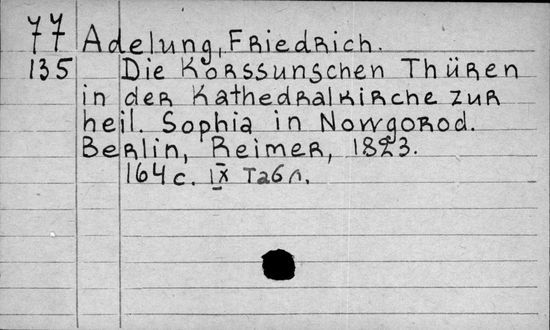 77 Adelung, Friedrich.
135 Die Korssunschen Thüren
in der Kathedralkirche zur
heil. Sophia in Nowgorod.
Berlin, Reimer, 1823.
164 с. IX табл.